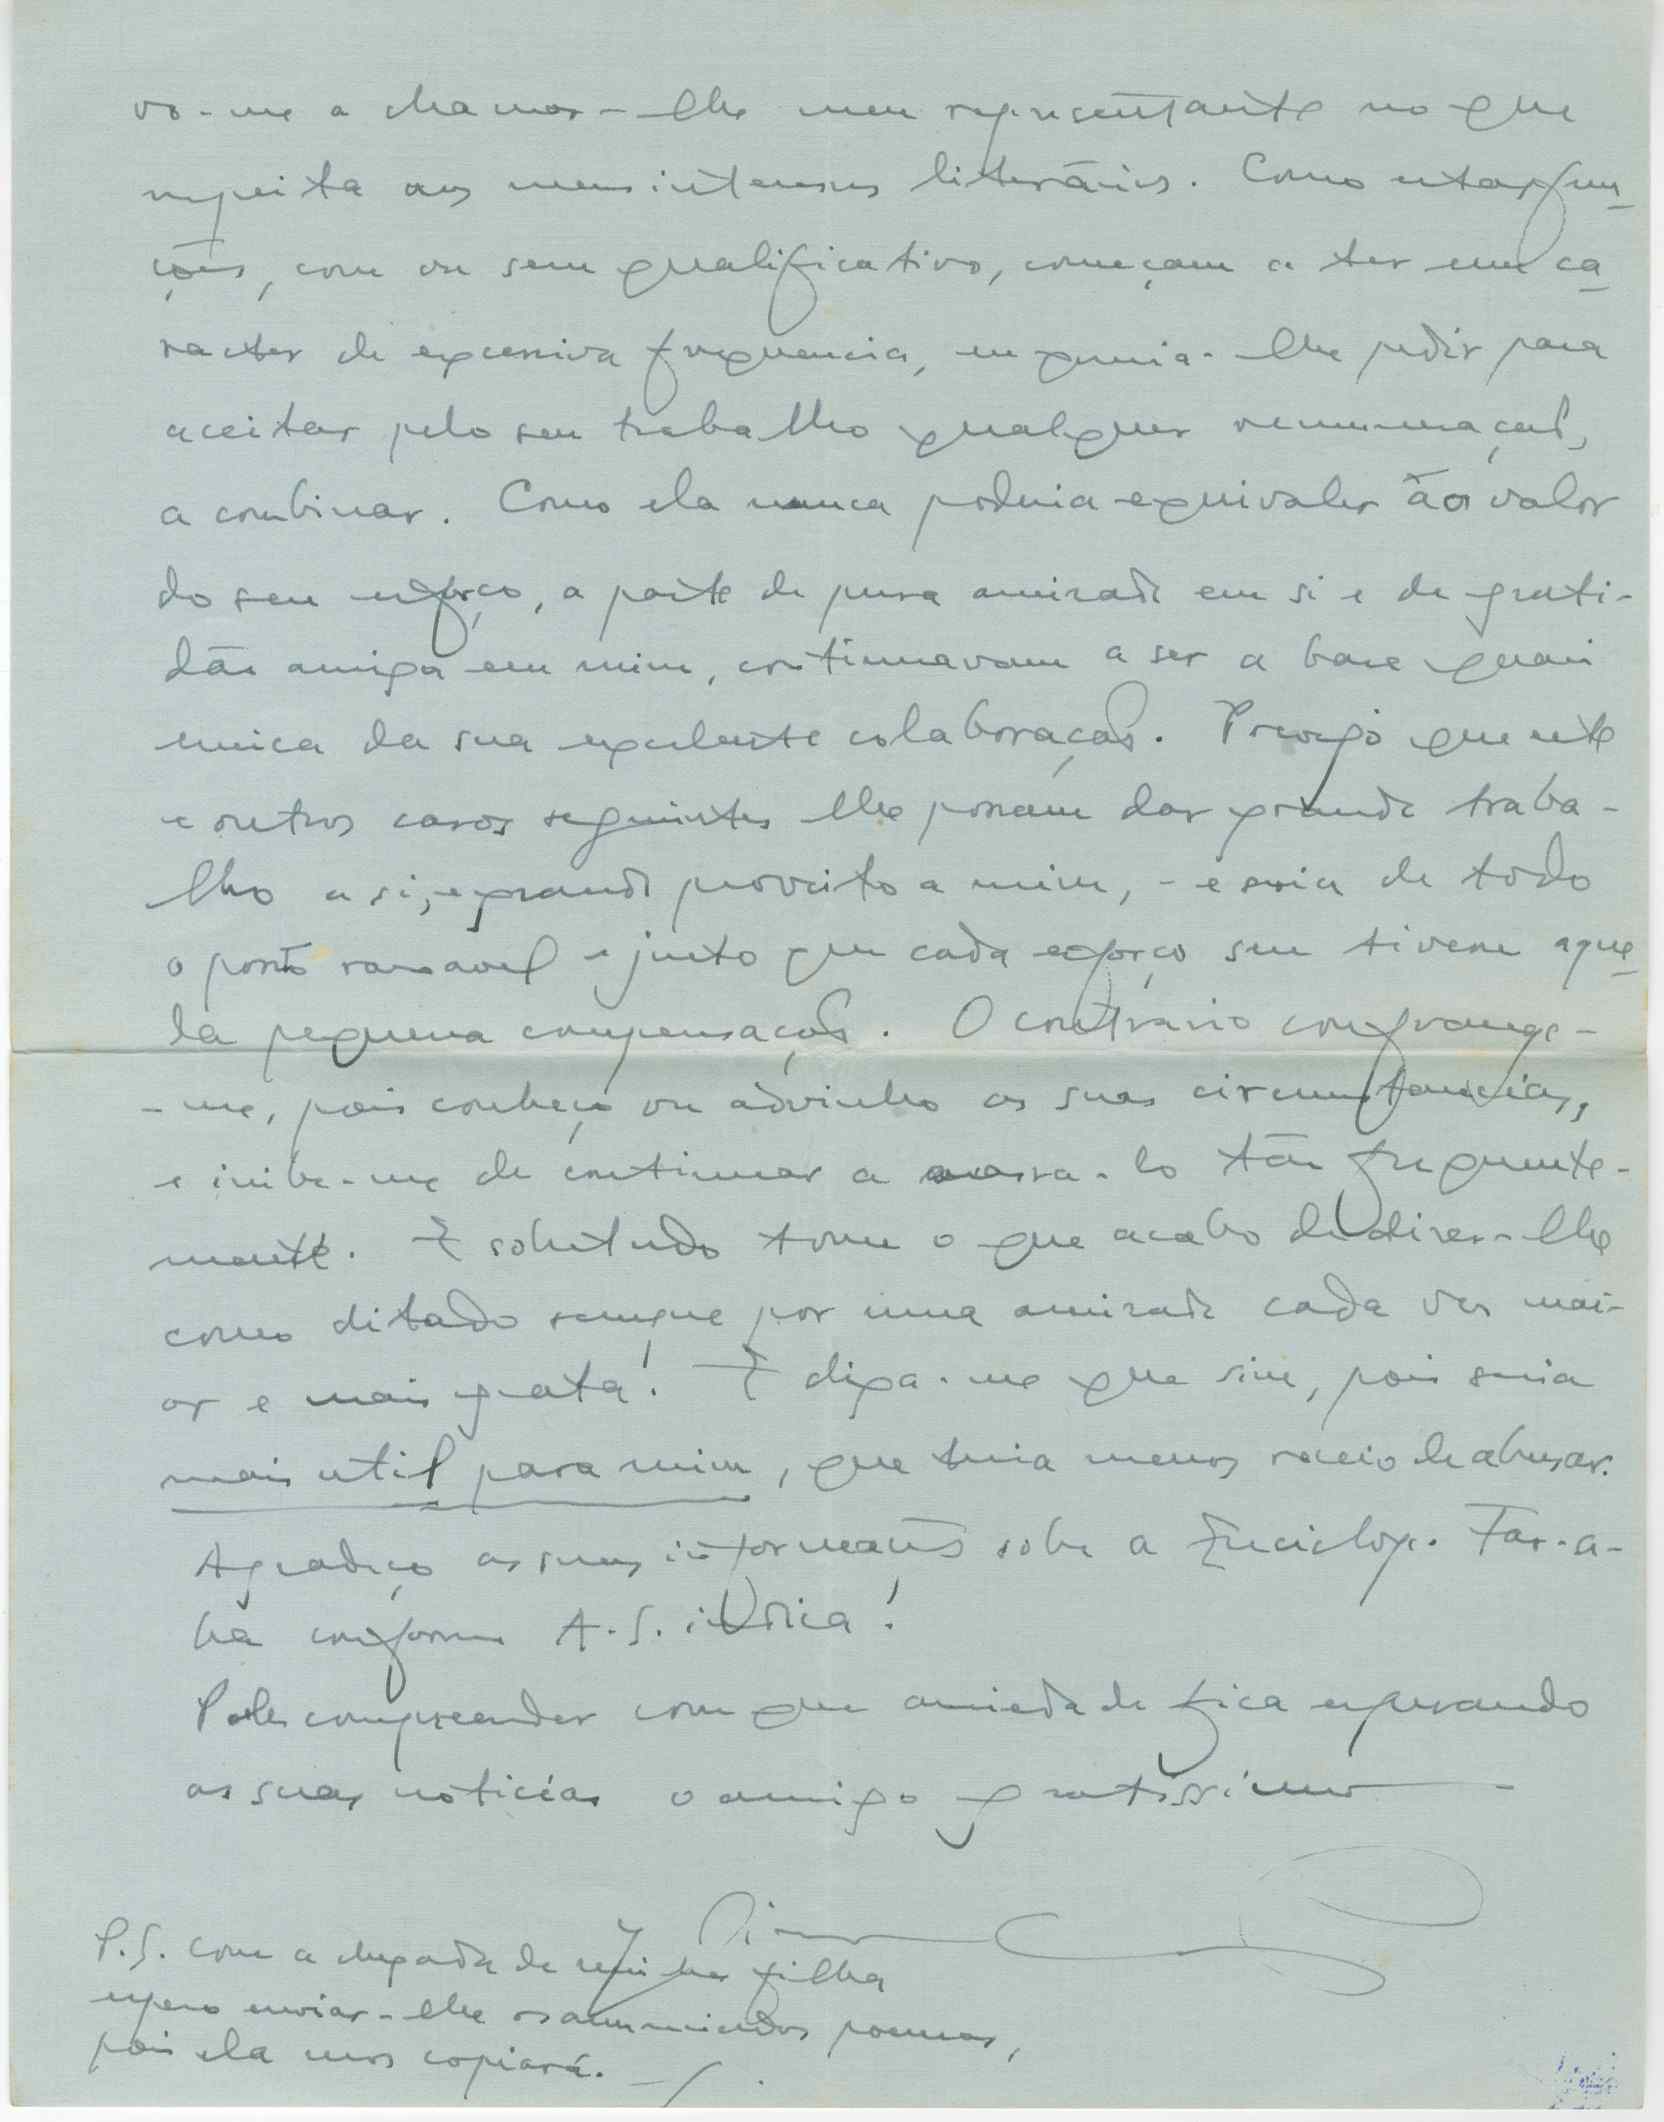 vo-me a chamar-lhe meu representante no que
respeita aos meus interesses literários. Como estas fun-
ções, com ou sem qualificativo, começam a ter um ca-
racter de excessiva frequencia, eu queria-lhe pedir para
aceitar pelo seu trabalho qualquer remuneração,
a combinar. Como ela nunca poderia equivaler ao valor
do seu esforço, a parte de pura amizade em si e de grati-
dão amiga em mim, continuavam a ser a base quasi
unica da sua excelente colaboração. Prevejo que este
e outros casos seguintes lhe possam dar grande traba-
lho a si, e grande proveito a mim, - e seria de todo
o ponto rasoavel e justo que cada esforço seu tivesse aque-
la pequena compensação. O contrário confrange-
-me, pois conheço ou advinho as suas circumstancias,
e inibe-me de continuar a massa-lo tão frequente-
mente. E sobretudo tome o que acabo de dizer-lhe
como ditado sempre por uma amizade cada vez mai-
or e mais grata! E diga-me que sim, pois seria
mais util para mim, que teria menos receio de abusar.
Agradeço as suas informações sobre a Enciclop. Far-a-
ha conforme A. S. indica!
Pode compreender com que ansiedade fica esperando
as suas noticias o amigo gratissimo
P.S. Com a chegada de minha filha
espero enviar-lhe os anunciados poemas,
pois ela mos copiará.